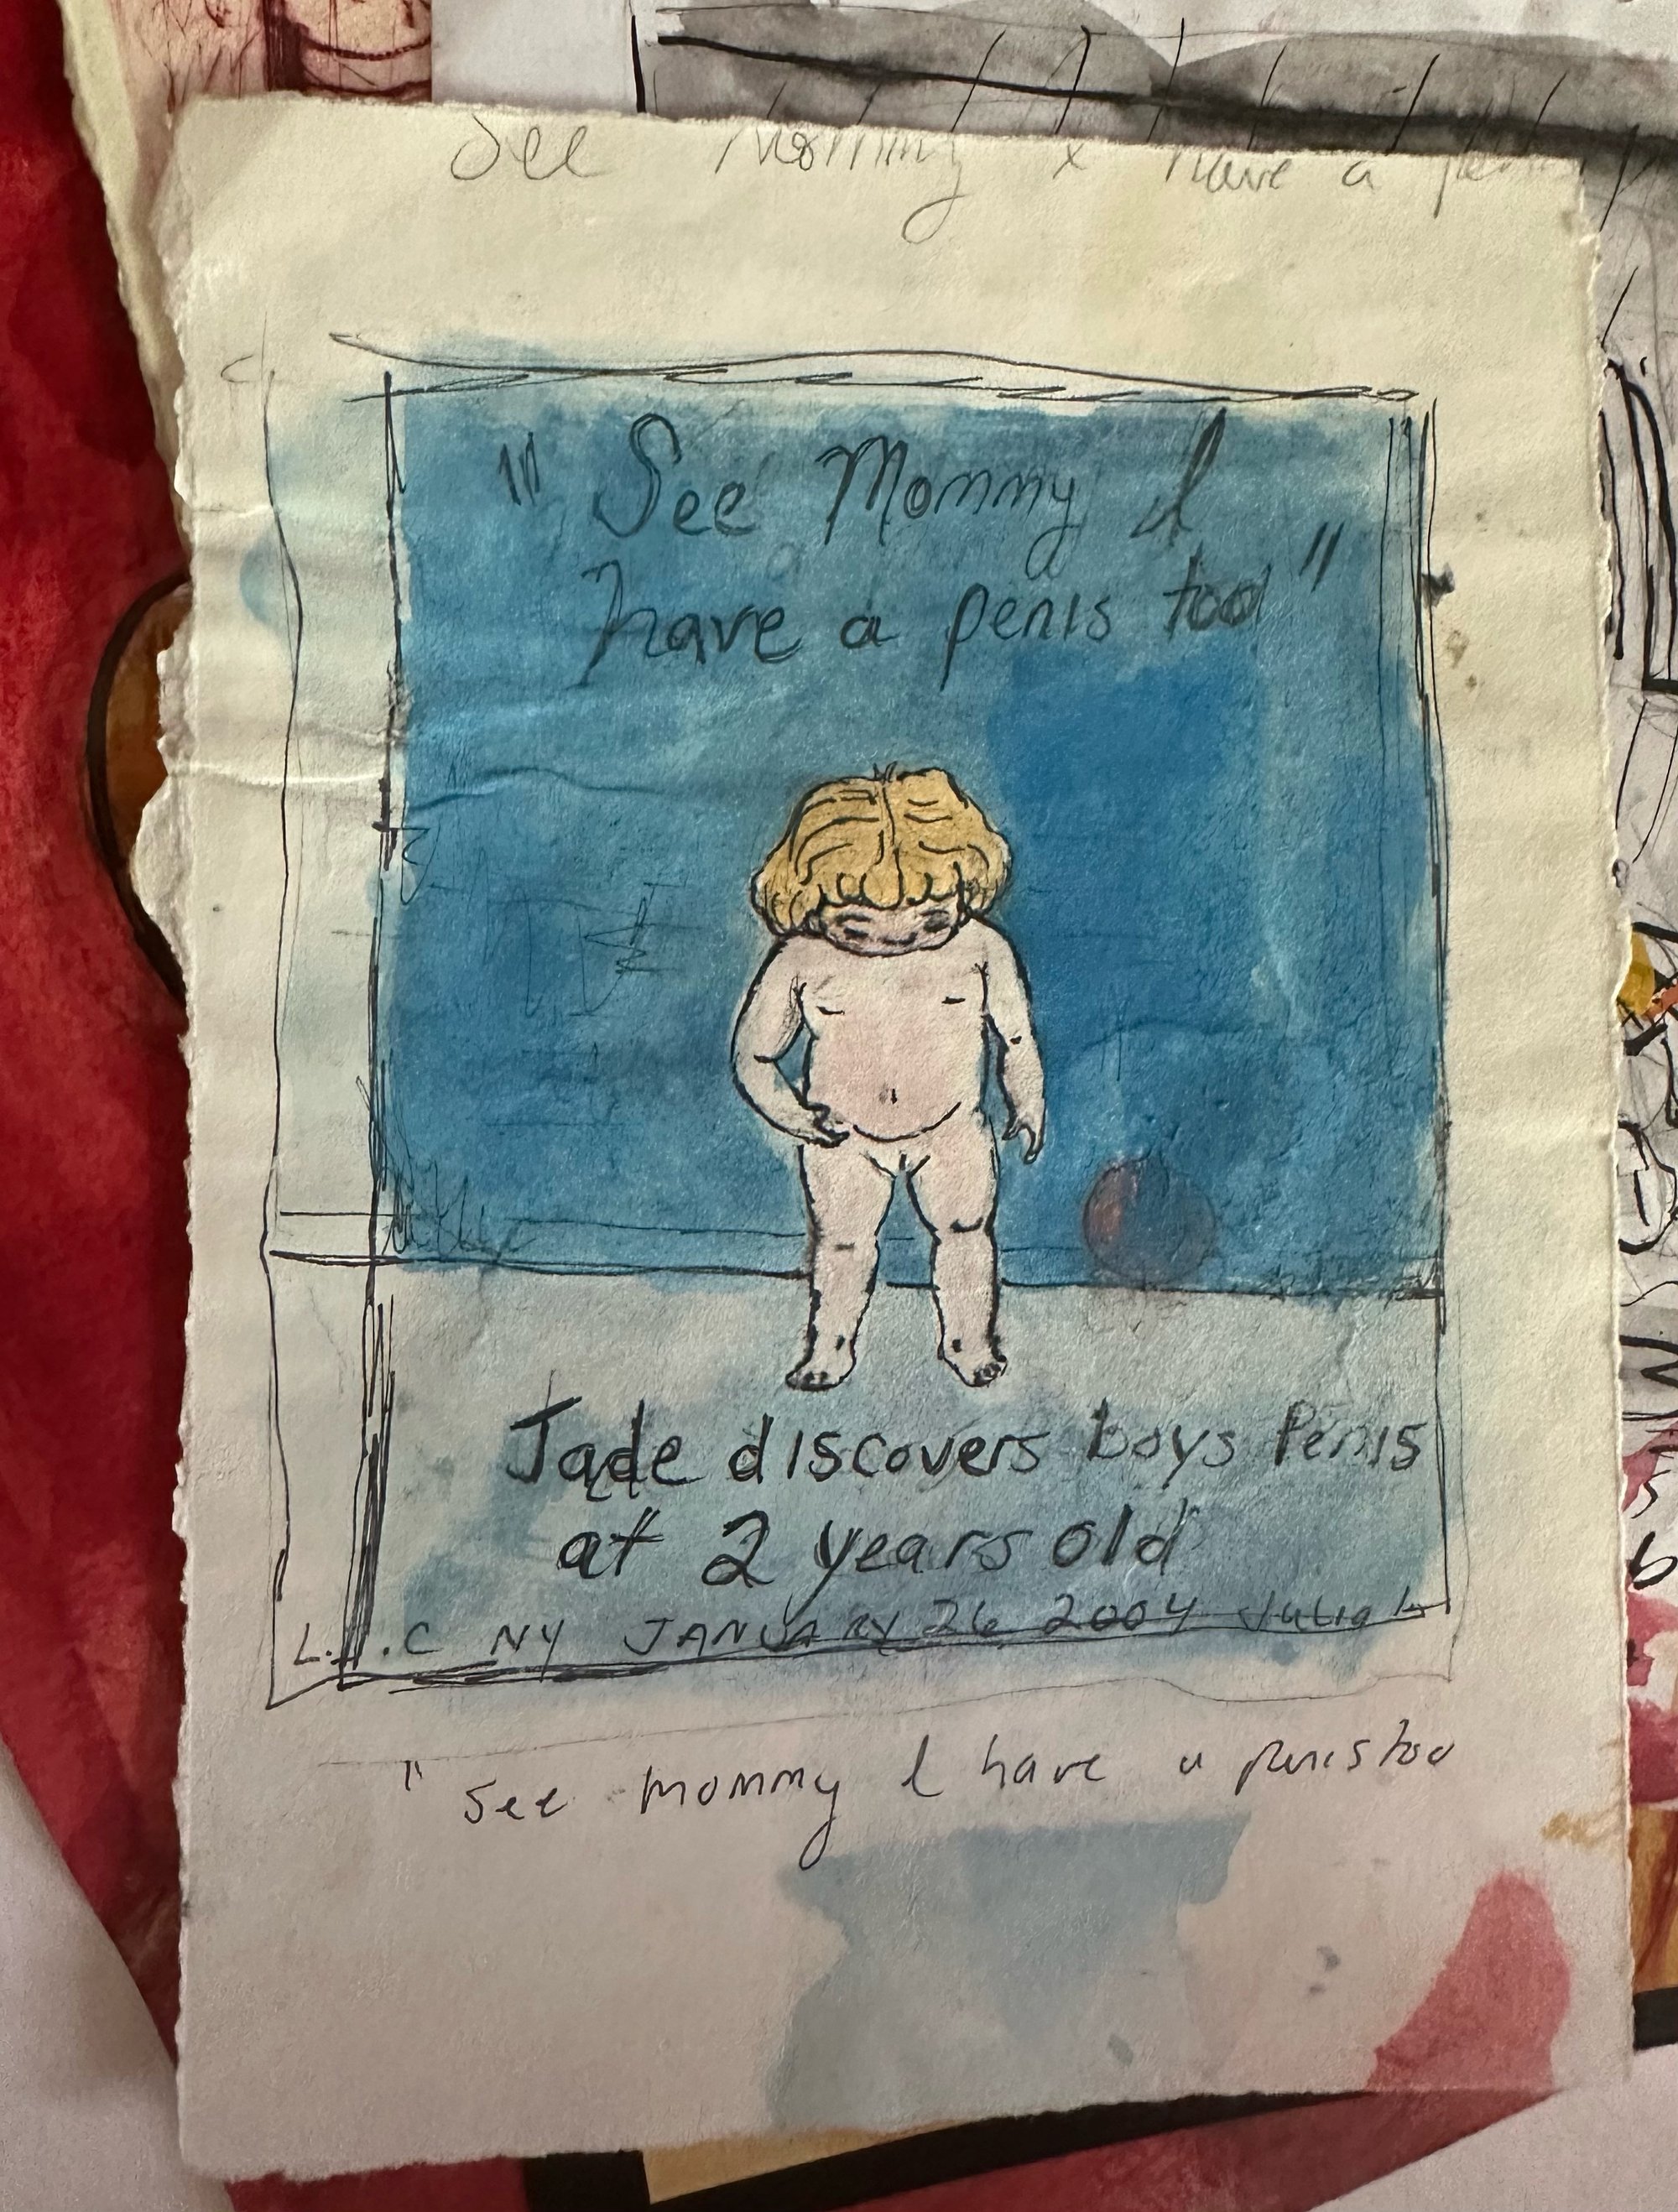 See Mommy I have a
" See Mommy I
have a penis too "
Jade discovers boys Penis
at 2 years old
L.I.C NY JANUARY 26 2004 Julia L
" See mommy I have a penis too